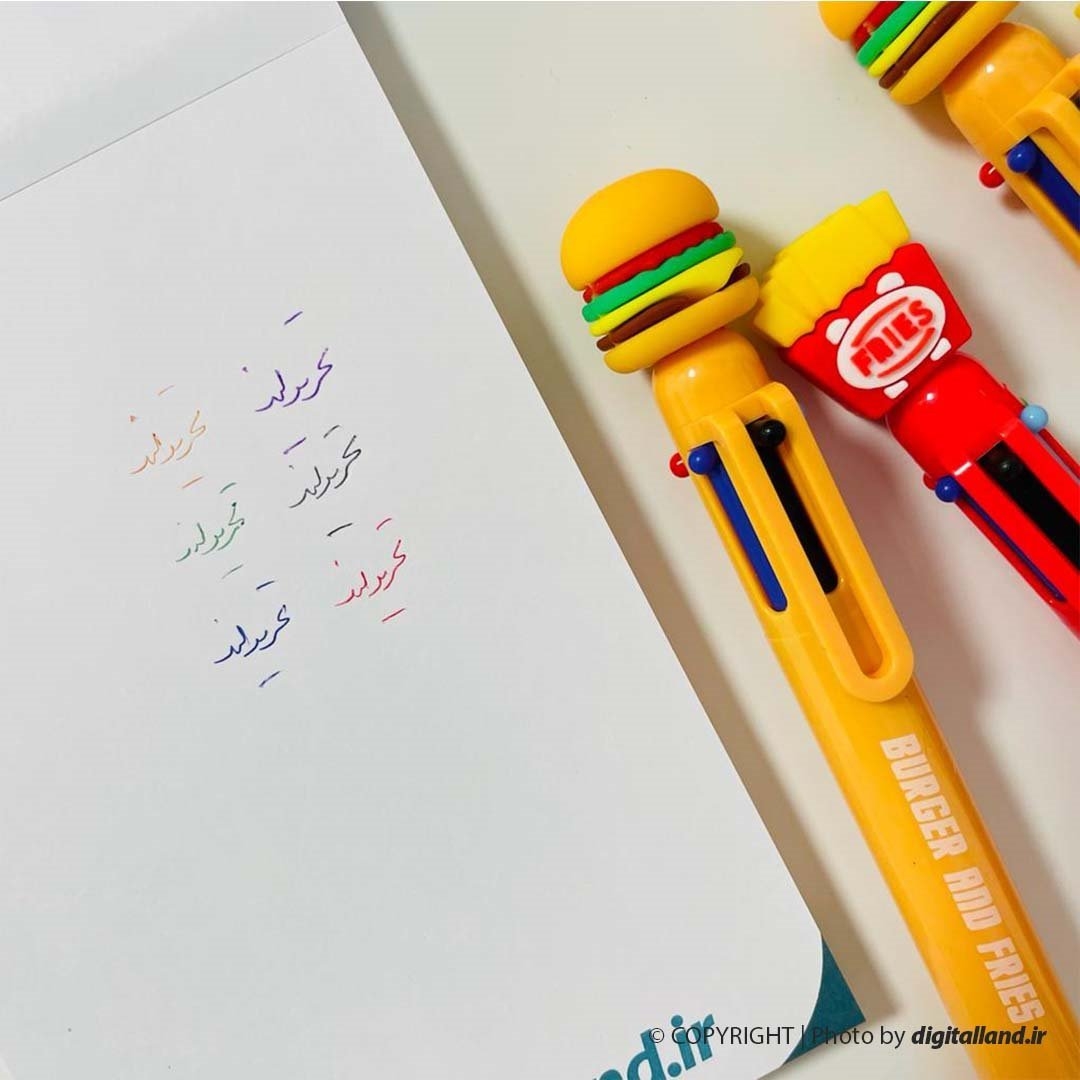 تحریرلند
تحریرلند
تحریرلند
تحریرلند
تحریرلند
تحریرلند
FRIES
BURGER AND FRIES
nd.ir
© COPYRIGHT | Photo by digitalland.ir